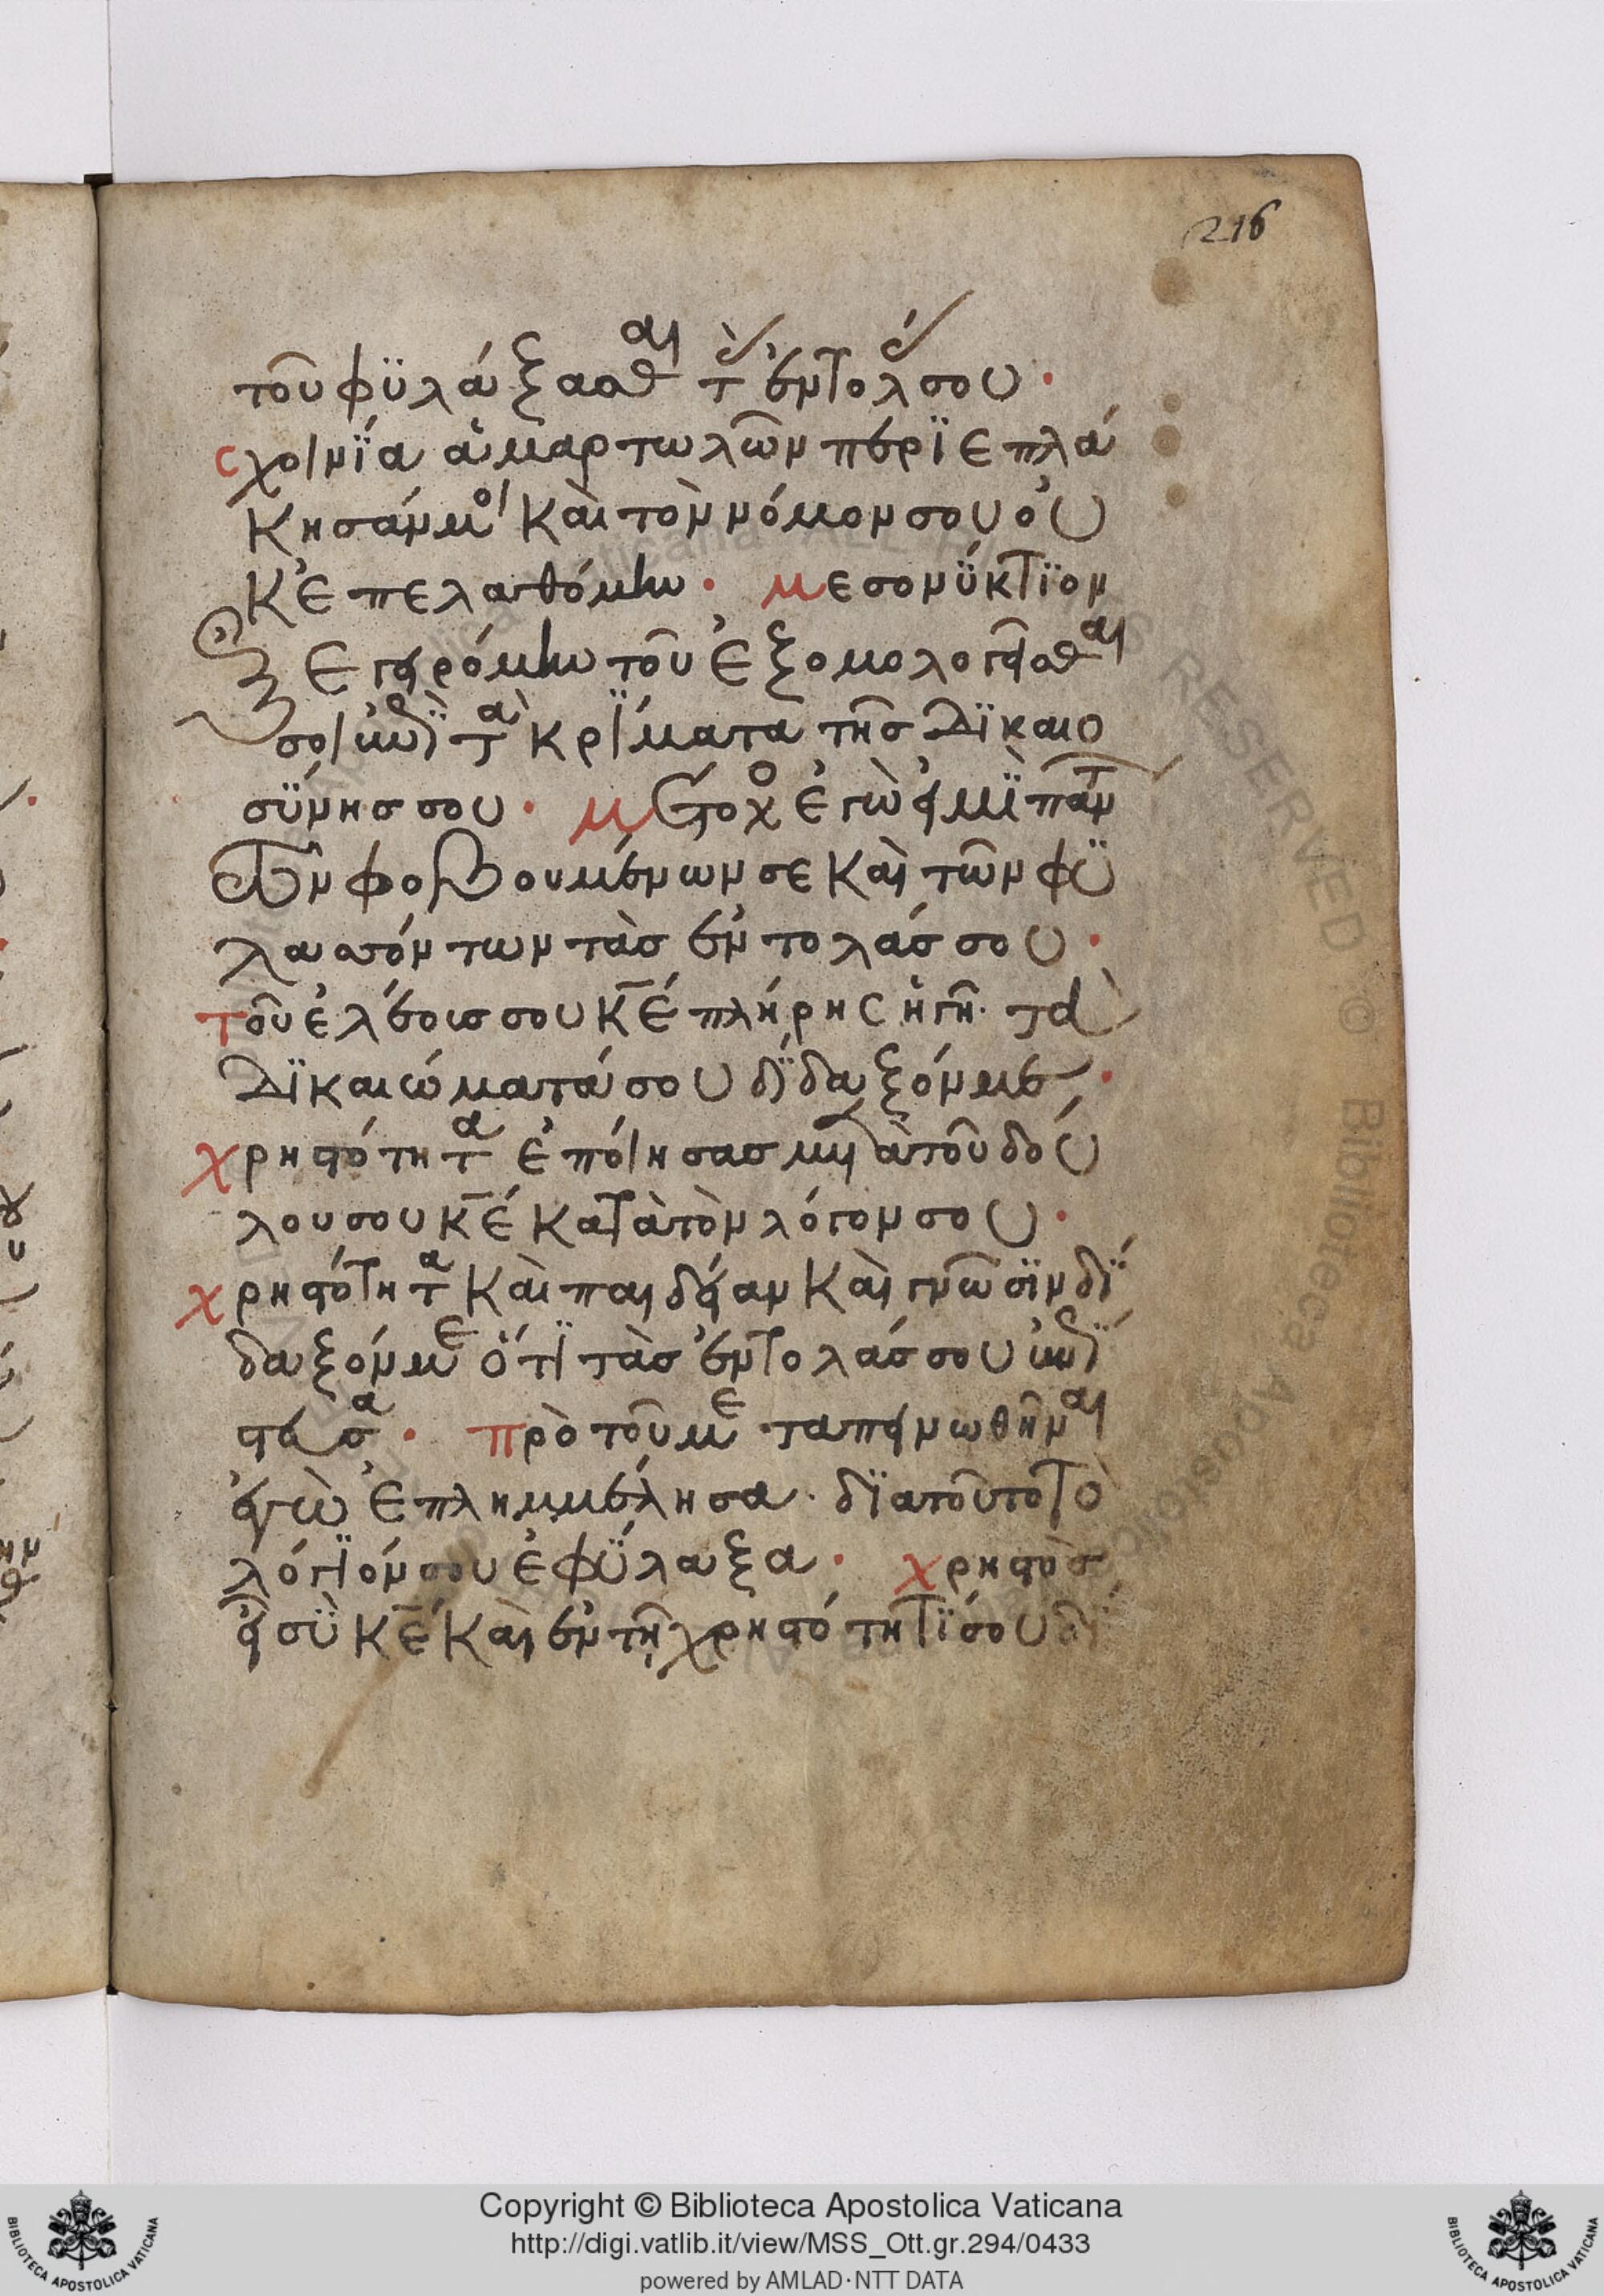 216
τοῦ φϋλάξασθαι τὰς ἐντολάς σου·
σχοινΐα ἁμαρτωλῶν περϊεπλά
κησάν μοι καὶ τὸν νόμον σου οὐ
κ ἐπελαθόμην· μεσονϋκτϊον
ἐξεγειρόμην τοῦ ἐξομολογεῖσθαι
σοι ἐπῒ τὰ κρΐματα τῆς δϊκαιο
σϋνης σου· μέτοχος ἐγώ εἰμῒ πάντων
τῶν φοβουμένων σε καὶ τῶν φϋ
λασσόντων τὰς ἐντολάς σου·
τοῦ ἐλέους σου κε̅ πλήρης ἡ γῆ· τὰ
δϊκαιώματά σου δΐδαξόν με·
χρηστότητα ἐποίησας μετὰ τοῦ δού
λου σου κε̅ κατὰ τὸν λόγον σου·
χρηστότητα καὶ παιδείαν καὶ γνῶσϊν δΐ
δαξόν με ὅτϊ τὰς ἐντολάς σου ἐπΐ
στευσα· πρὸ τοῦ με ταπεινωθῆναι
ἐγὼ ἐπλημμέλησα· δϊατοῦτο τὸ
λόγϊόν σου ἐφΰλαξα· χρηστὸς
εἶ σϋ κε̅ καὶ ἐν τῇ χρηστότητΐ σου δΐ
Copyright © Biblioteca Apostolica Vaticana
http://digi.vatlib.it/view/MSS_Ott.gr.294/0433
powered by AMLAD·NTT DATA
BIBLIOTECA APOSTOLICA VATICANA
BIBLIOTECA APOSTOLICA VATICANA